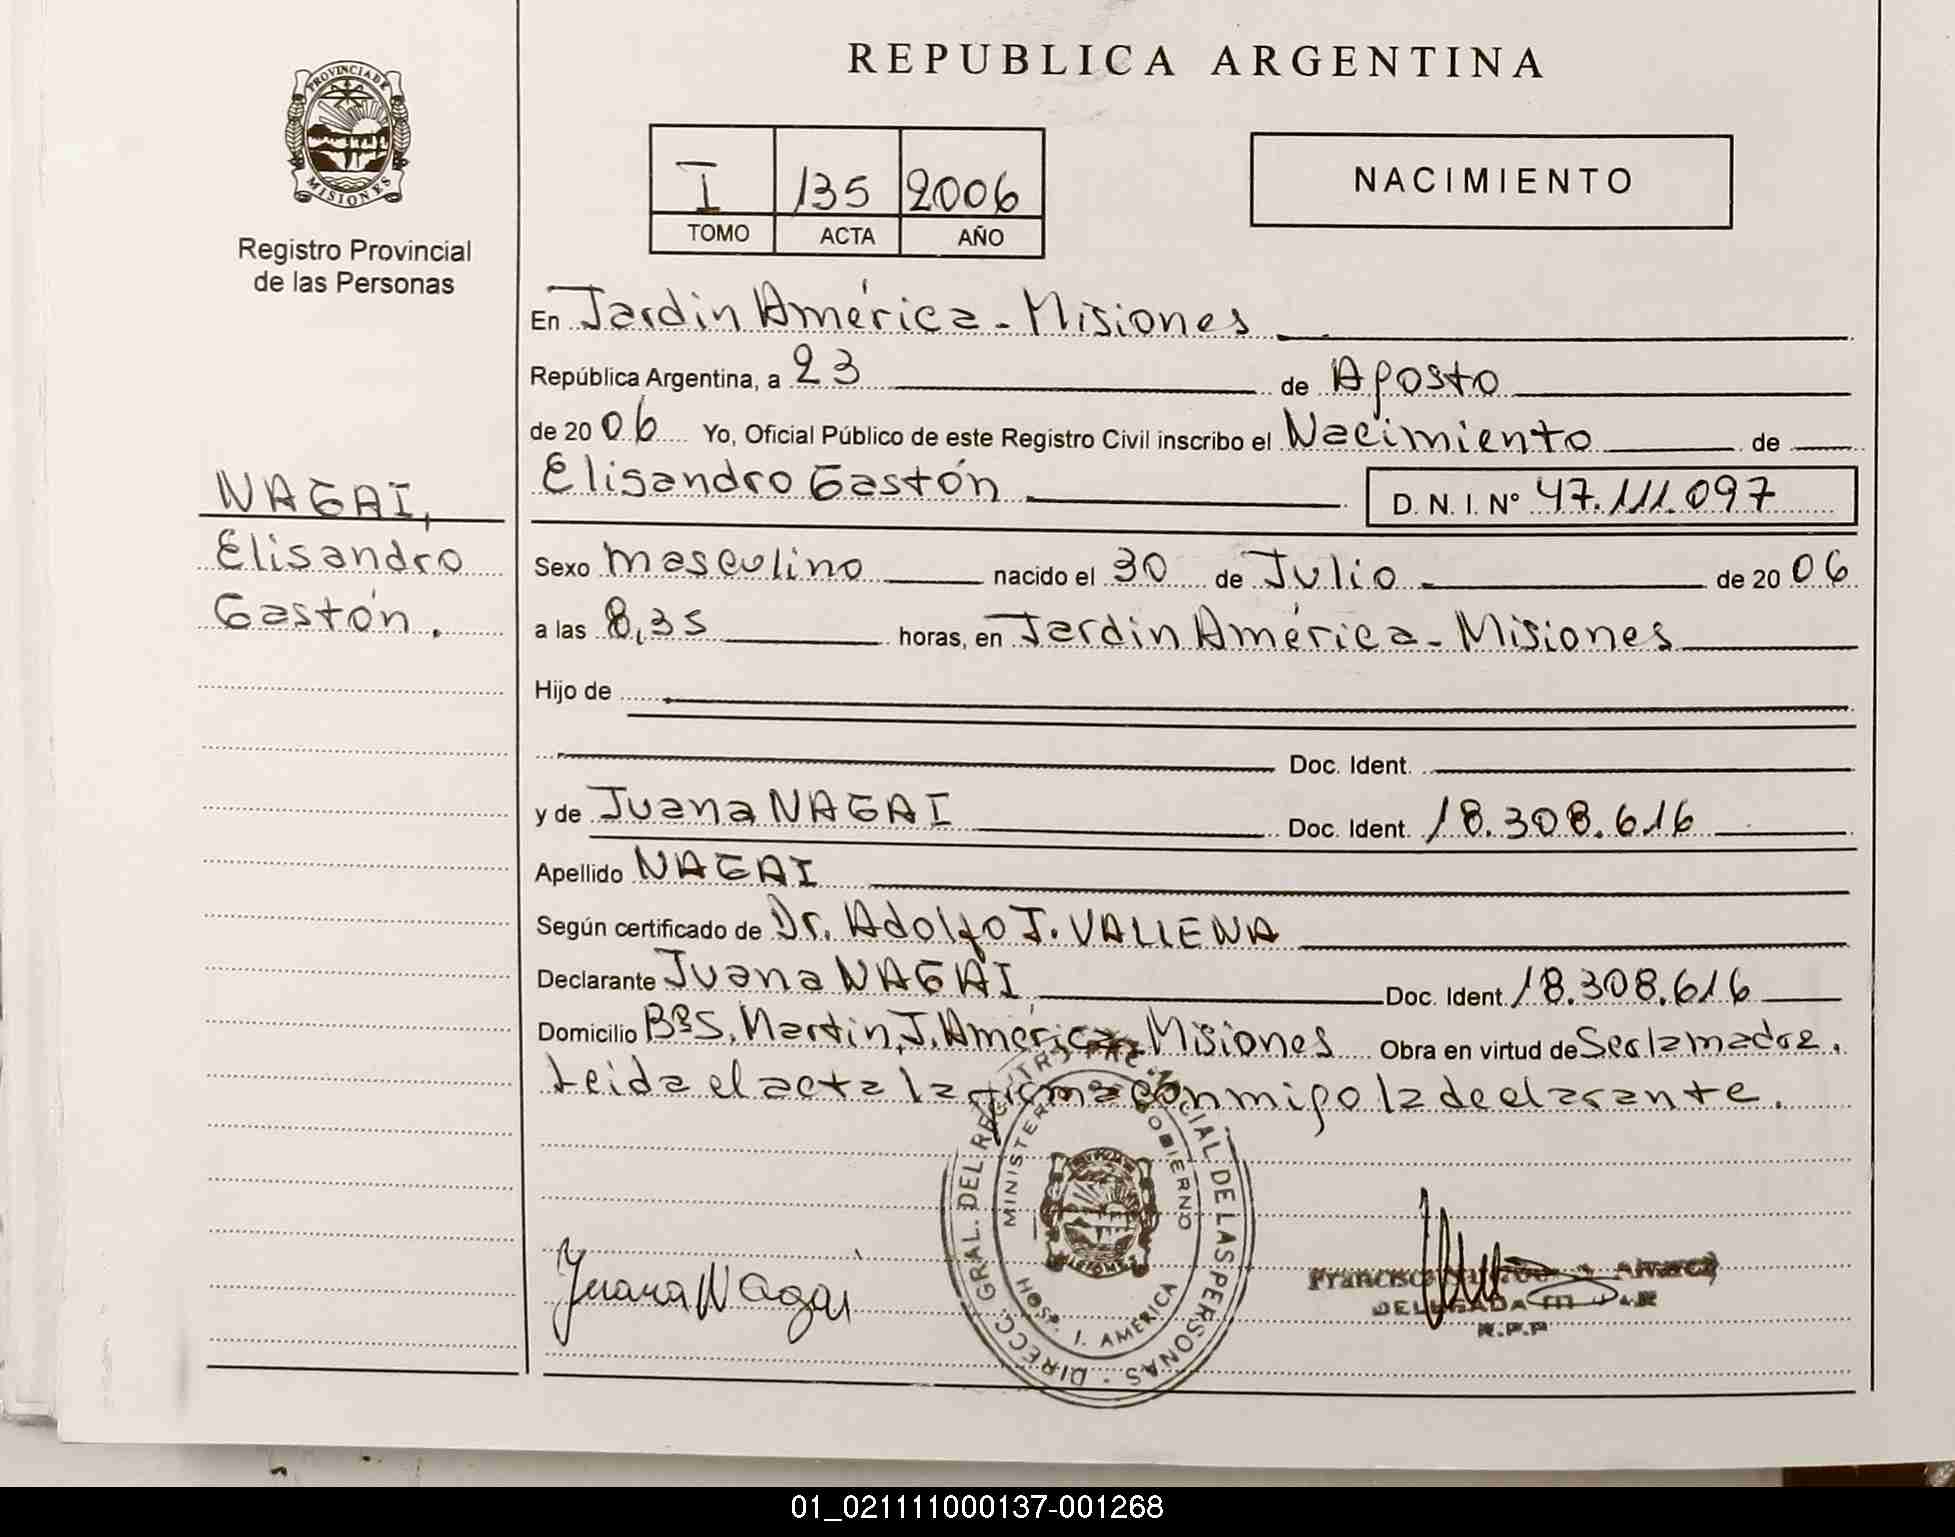 REPUBLICA ARGENTINA
PROVINCIA DE
MISIONES
Registro Provincial
de las Personas
I 135 2006
TOMO ACTA AÑO
NACIMIENTO
En Jardin América - Misiones
República Argentina, a 23 de Agosto
de 2006 Yo, Oficial Público de este Registro Civil inscribo el Nacimiento de
Elisandro Gastón D. N. I. Nº 47.111.097
NAGAI,
Elisandro
Gastón.
Sexo masculino nacido el 30 de Julio de 2006
a las 8,35 horas, en Jardin América - Misiones
Hijo de
Doc. Ident.
y de Juana NAGAI Doc. Ident. 18.308.616
Apellido NAGAI
Según certificado de Dr. Adolfo J. VALLENA
Declarante Juana NAGAI Doc. Ident. 18.308.616
Domicilio Bº S. Martin, J. América - Misiones Obra en virtud de Ser la madre.
Leida el acta la firma conmigo la declarante.
DIRECC. GRAL. DEL REGISTRO PROVINCIAL DE LAS PERSONAS
MINISTERIO GOBIERNO
HOSP. J. AMERICA
MISIONES
Juana Nagai
Francisca Alvarez
DELEGADA TITULAR
R.P.P
01_021111000137-001268